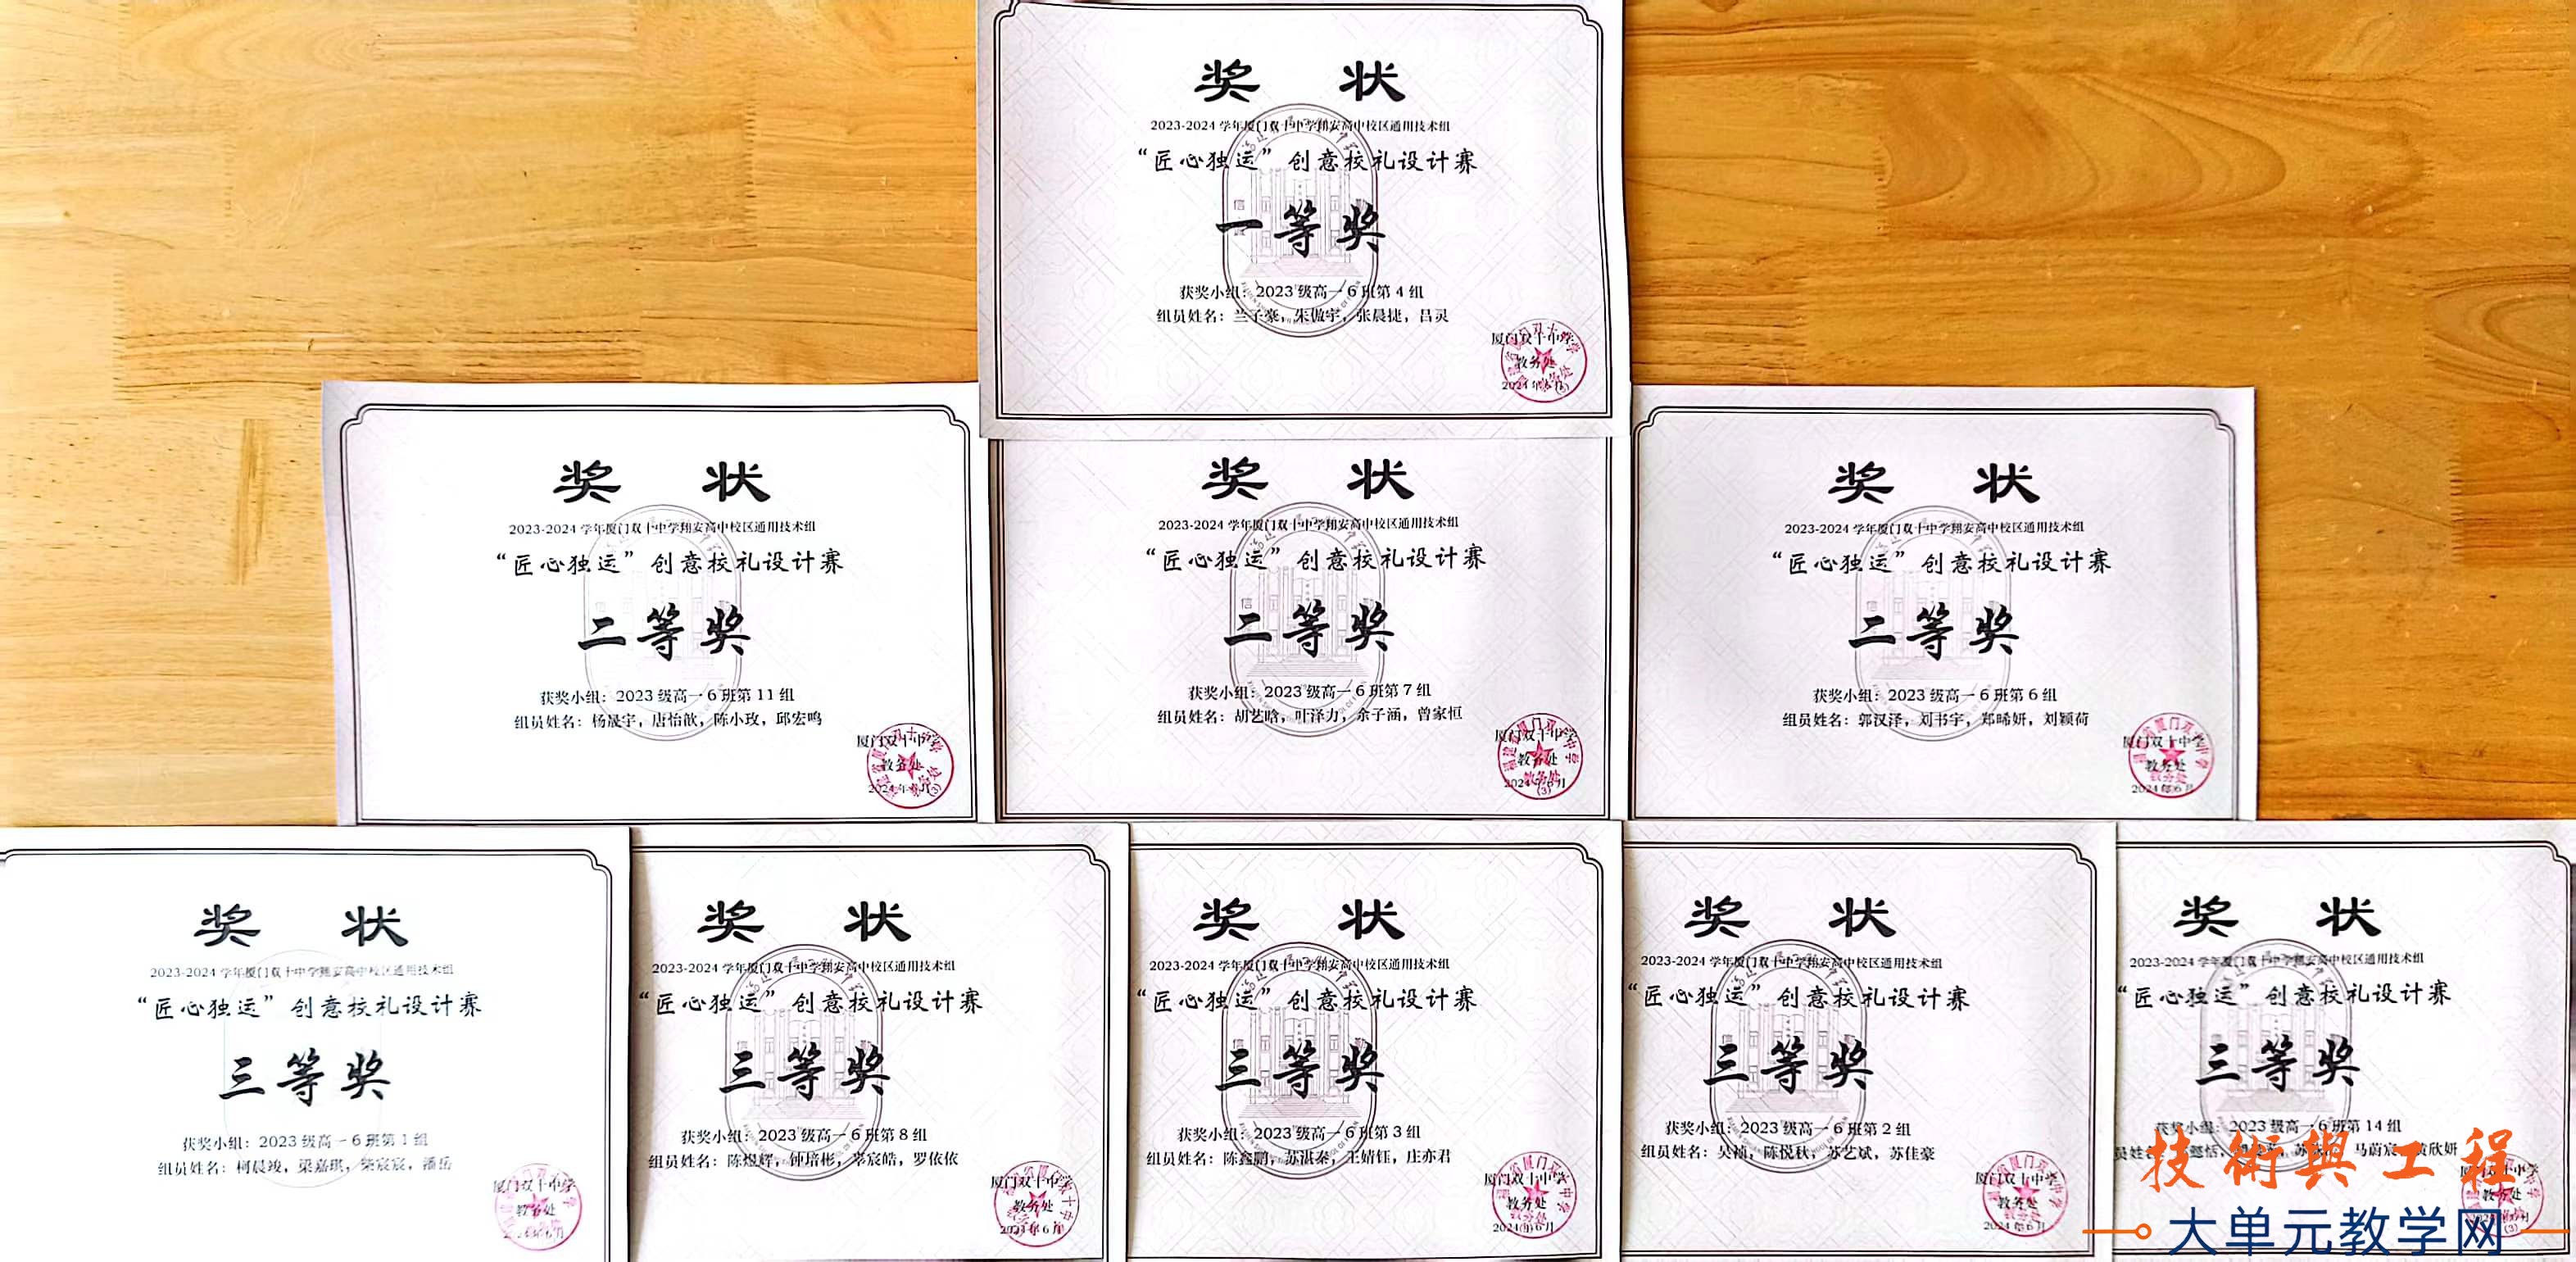 奖 状
2023-2024 学年厦门双十中学翔安高中校区通用技术组
“匠心独运” 创意校礼设计赛
一等奖
获奖小组：2023 级高一 6 班第 4 组
组员姓名：兰子豪，朱傲宇，张晨捷，吕灵
厦门双十中学
教务处
2024 年 6 月
奖 状
2023-2024 学年厦门双十中学翔安高中校区通用技术组
“匠心独运” 创意校礼设计赛
二等奖
获奖小组：2023 级高一 6 班第 11 组
组员姓名：杨晟宇，唐怡歆，陈小玫，邱宏鸣
厦门双十中学
教务处
2024 年 6 月
奖 状
2023-2024 学年厦门双十中学翔安高中校区通用技术组
“匠心独运” 创意校礼设计赛
二等奖
获奖小组：2023 级高一 6 班第 7 组
组员姓名：胡艺晗，叶泽力，余子涵，曾家恒
厦门双十中学
教务处
2024 年 6 月
奖 状
2023-2024 学年厦门双十中学翔安高中校区通用技术组
“匠心独运” 创意校礼设计赛
二等奖
获奖小组：2023 级高一 6 班第 6 组
组员姓名：郭汉泽，刘书宇，郑晞妍，刘颖荷
厦门双十中学
教务处
2024 年 6 月
奖 状
2023-2024 学年厦门双十中学翔安高中校区通用技术组
“匠心独运” 创意校礼设计赛
三等奖
获奖小组：2023 级高一 6 班第 1 组
组员姓名：柯晨竣，梁嘉琪，柴宸宸，潘岳
厦门双十中学
教务处
2024 年 6 月
奖 状
2023-2024 学年厦门双十中学翔安高中校区通用技术组
“匠心独运” 创意校礼设计赛
三等奖
获奖小组：2023 级高一 6 班第 8 组
组员姓名：陈煜辉，钟培彬，宸皓，罗依依
厦门双十中学
教务处
2024 年 6 月
奖 状
2023-2024 学年厦门双十中学翔安高中校区通用技术组
“匠心独运” 创意校礼设计赛
三等奖
获奖小组：2023 级高一 6 班第 3 组
组员姓名：陈鑫鹏，苏湛秦，王婧钰，庄亦君
厦门双十中学
教务处
2024 年 6 月
奖 状
2023-2024 学年厦门双十中学翔安高中校区通用技术组
“匠心独运” 创意校礼设计赛
三等奖
获奖小组：2023 级高一 6 班第 2 组
组员姓名：吴祯，陈悦秋，苏艺斌，苏佳豪
厦门双十中学
教务处
2024 年 6 月
奖 状
2023-2024 学年厦门双十中学翔安高中校区通用技术组
“匠心独运” 创意校礼设计赛
三等奖
获奖小组：2023 级高一 6 班第 14 组
马蔚宸
厦门双十中学
教务处
技術與工程
大单元教学网